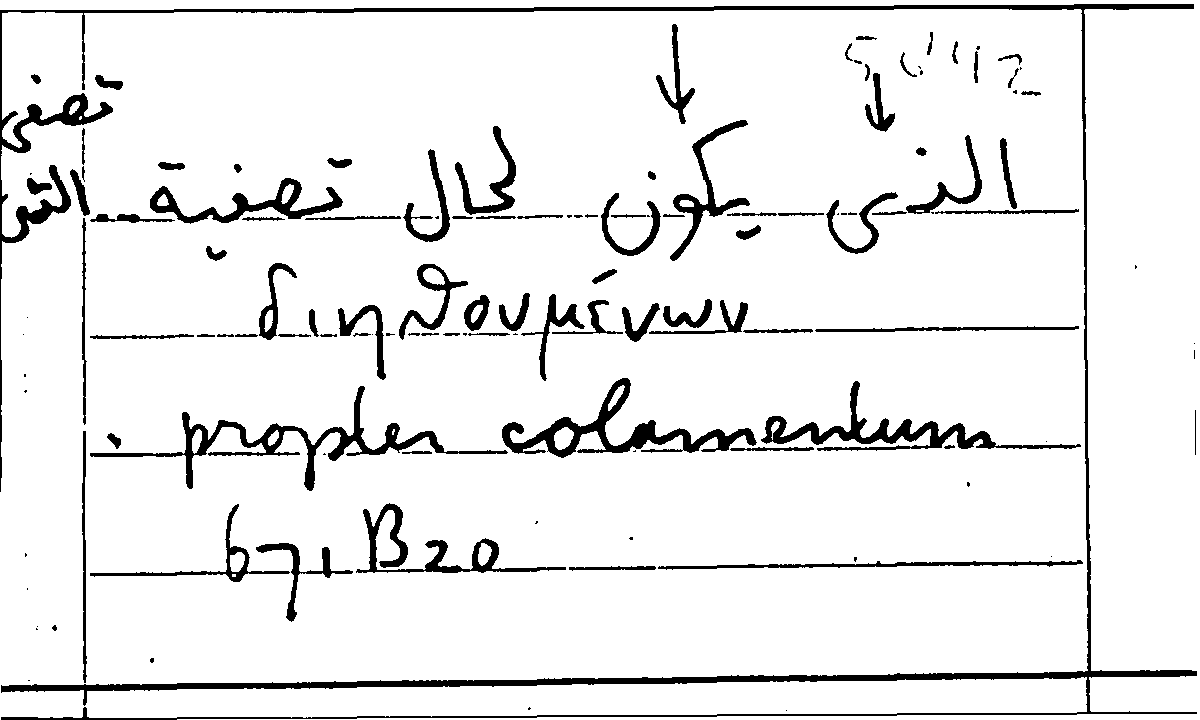 تصفى
الذى يكون لحال تصفية...
διηθουμένων
. propter colamentum
671 B 20